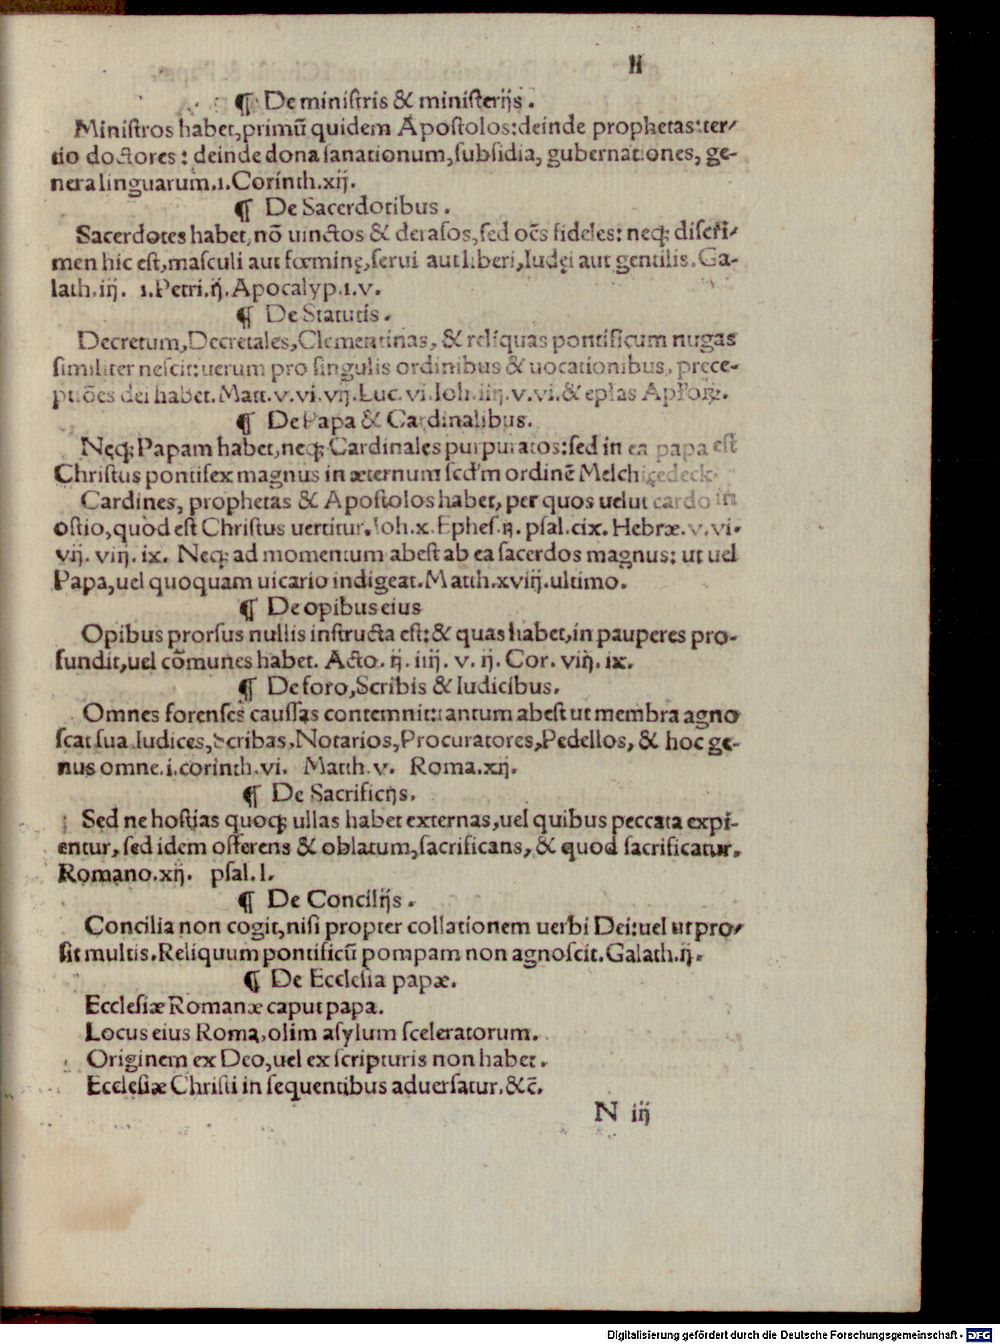 II
¶ De ministris & ministerijs.
Ministros habet, primũ quidem Apostolos: deinde prophetas: ter/
tio doctores: deinde dona sanationum, subsidia, gubernationes, ge-
nera linguarum. 1. Corinth. xij.
¶ De Sacerdotibus.
Sacerdotes habet, nõ uinctos & derasos, sed oẽs fideles: neq; discri/
men hic est, masculi aut fœminę, serui aut liberi, Iudęi aut gentilis. Ga-
lath. iij. 1. Petri. ij. Apocalyp. 1. v.
¶ De Statutis.
Decretum, Decretales, Clementinas, & reliquas pontificum nugas
similiter nescit: uerum pro singulis ordinibus & uocationibus, prece-
ptiões dei habet. Matt. v. vi. vij. Luc. vi. Ioh. iiij. v. vi. & eplas
¶ De Papa & Cardinalibus.
Neq; Papam habet, neq; Cardinales purpuratos: sed in ea papa est
Christus pontifex magnus in æternum scd'm ordinẽ Melchizedeck.
Cardines, prophetas & Apostolos habet, per quos uelut cardo in
ostio, quod est Christus uertitur. Ioh. x. Ephes. ij. psal. cix. Hebræ. v. vi.
vij. viij. ix. Neq; ad momentum abest ab ea sacerdos magnus: ut uel
Papa, uel quoquam uicario indigeat. Matth. xviij. ultimo.
¶ De opibus eius
Opibus prorsus nullis instructa est: & quas habet, in pauperes pro-
fundit, uel cõmunes habet. Acto. ij. iiij. v. ij. Cor. viij. ix.
¶ De foro, Scribis & Iudicibus.
Omnes forenses caussas contemnit: tantum abest ut membra agno
scat sua Iudices, Scribas, Notarios, Procuratores, Pedellos, & hoc ge-
nus omne. i. corinth. vi. Matth. v. Roma. xij.
¶ De Sacrificijs.
Sed ne hostias quoq; ullas habet externas, uel quibus peccata expi-
entur, sed idem offerens & oblatum, sacrificans, & quod sacrificatur.
Romano. xij. psal. l.
¶ De Concilijs.
Concilia non cogit, nisi propter collationem uerbi Dei: uel ut pro/
sit multis. Reliquum pontificũ pompam non agnoscit. Galath. ij.
¶ De Ecclesia papæ.
Ecclesiæ Romanæ caput papa.
Locus eius Roma, olim asylum sceleratorum.
Originem ex Deo, uel ex scripturis non habet.
Ecclesiæ Christi in sequentibus aduersatur. &c̃.
N iij
Digitalisierung gefördert durch die Deutsche Forschungsgemeinschaft - DFG